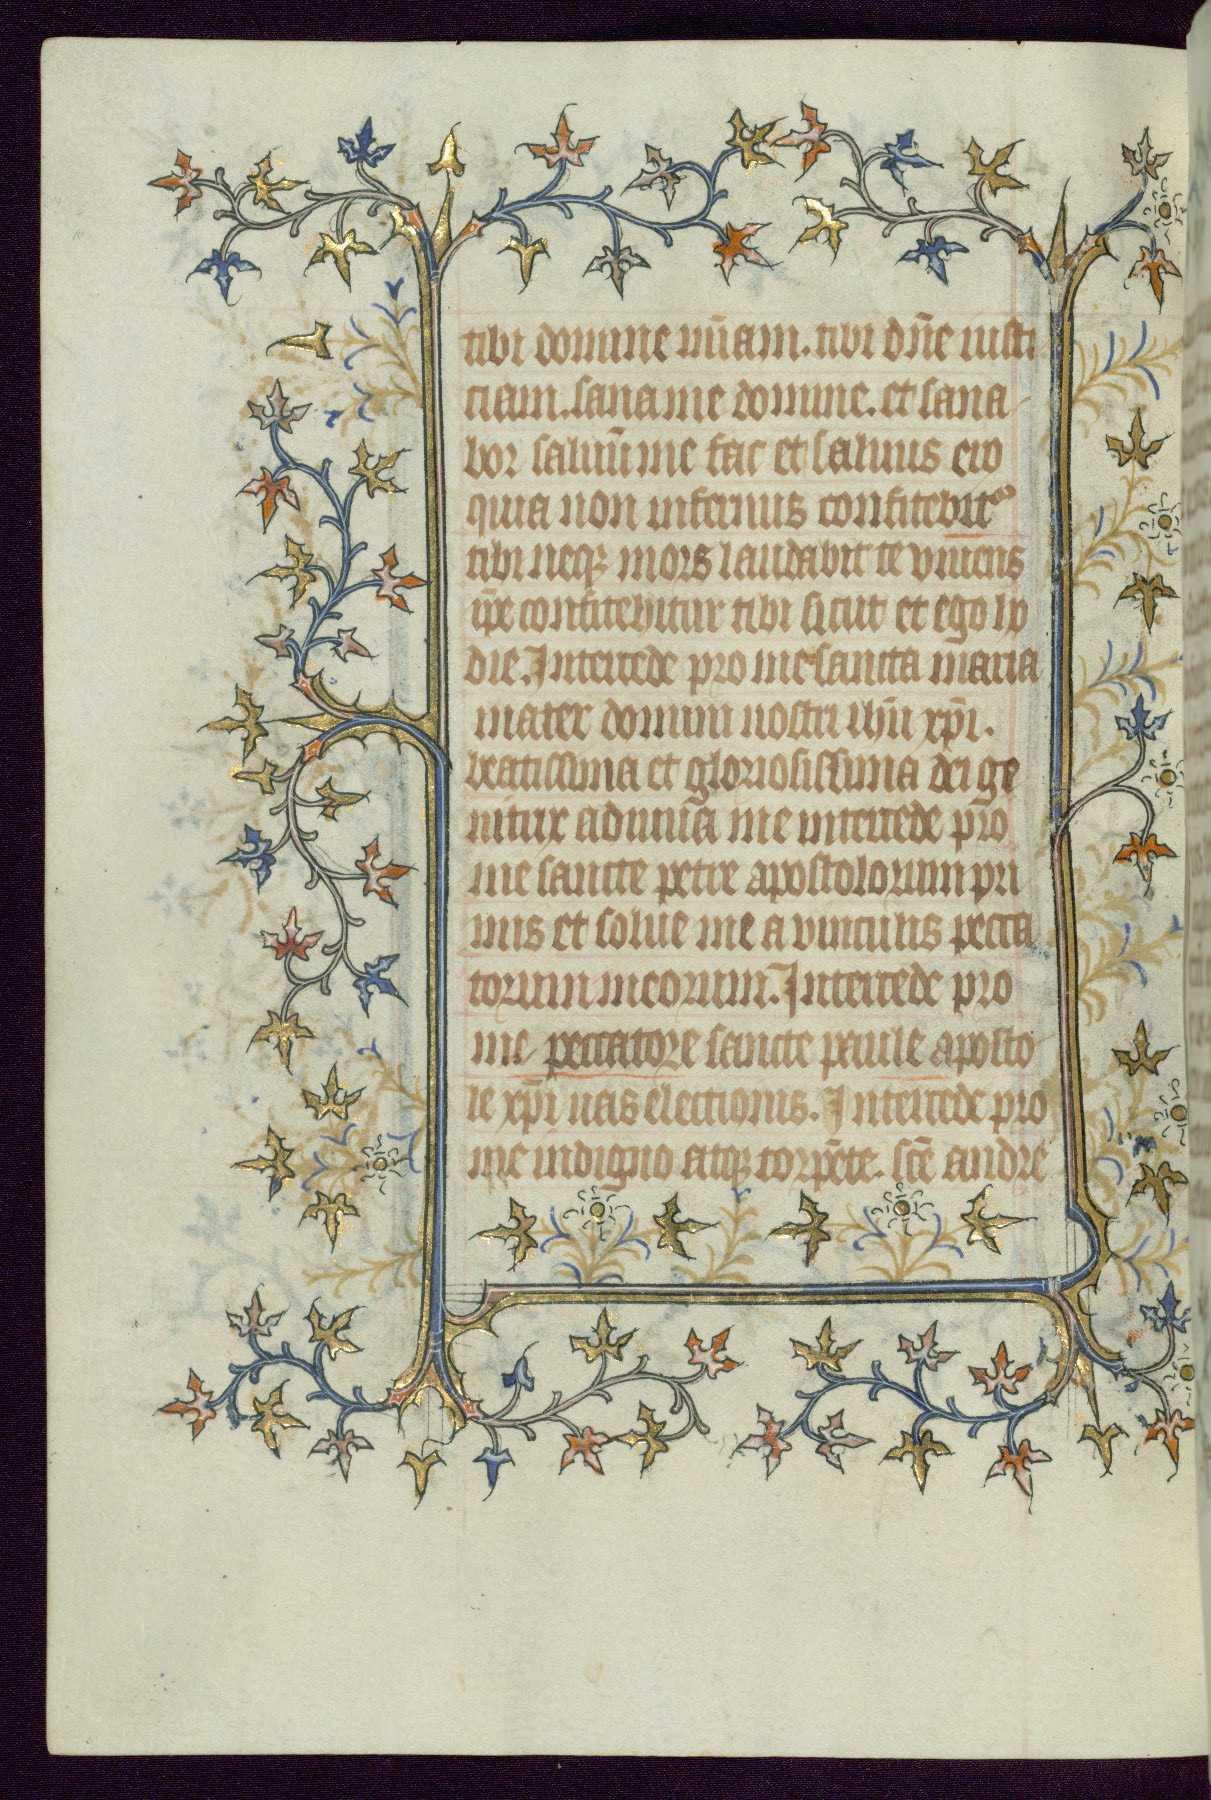 tibi domine miā̄am. tibi dn̄e iusti
ciam. sana me domine. et sana-
bor saluū me fac et saluus ero
quia non infernus confitebit᷒
tibi neq; mors laudabit te viuens
ip̄e confitebitur tibi sicut et ego ho
die. Intercede pro me sancta maria
mater domini nostri ihū xp̄i.
beatissima et gloriosissima dei ge
nitrix me intercede pro
me sancte petre apostolorum pri
mus et solue me a vinculis pecca
torum meorum. Intercede pro
me peccatore sancte paule aposto-
le xp̄i uas electionis. Intercede pro
me indigno atq; torpēte. sc̄e andre